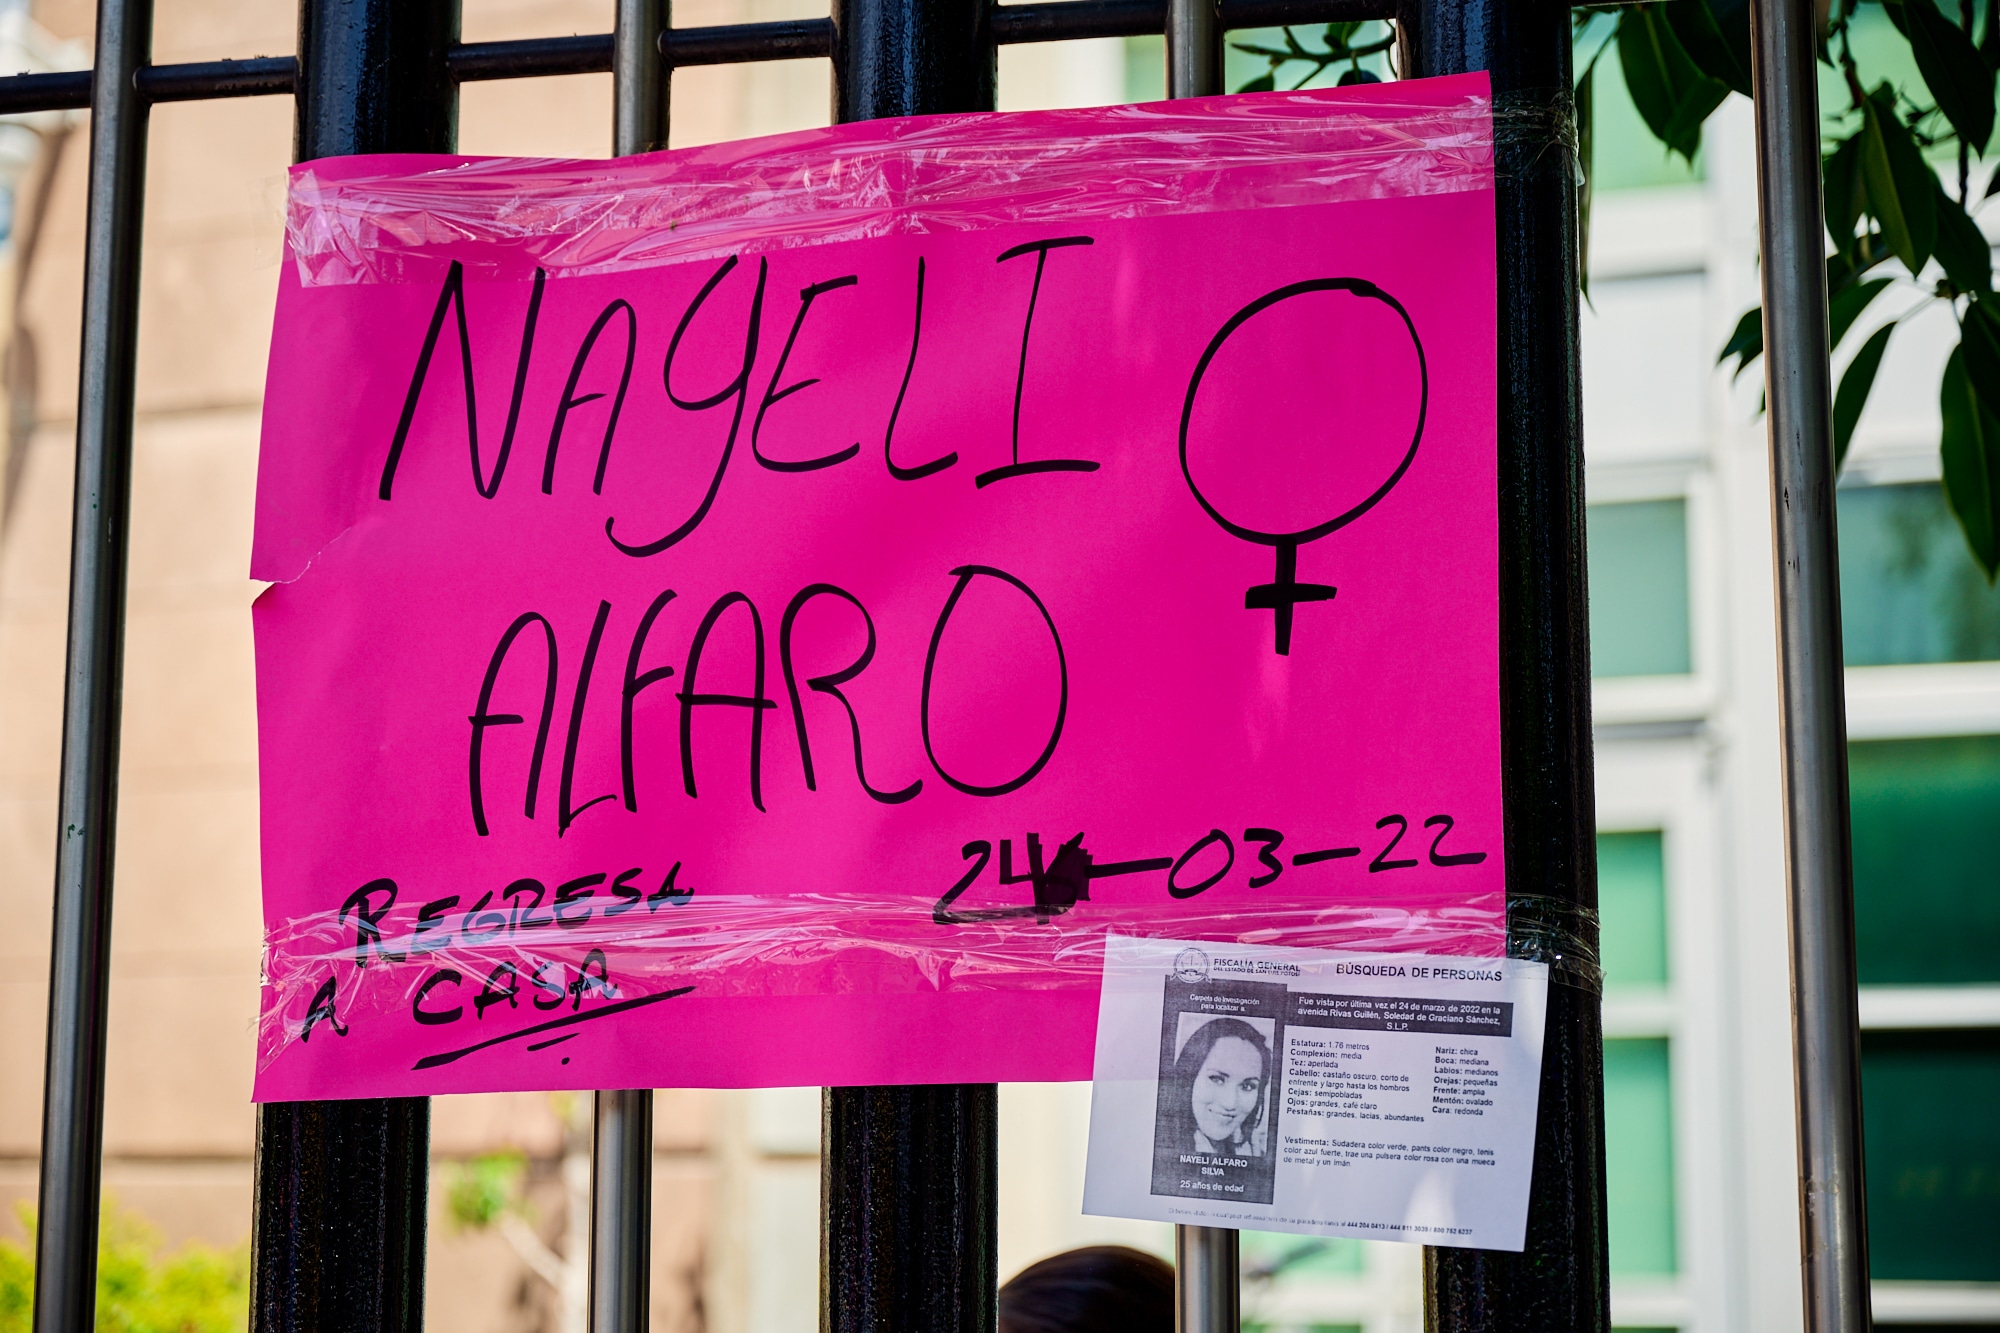 NAYELI
ALFARO
24-03-22
REGRESA
A CASA
FISCALÍA GENERAL
DEL ESTADO DE SAN LUIS POTOSÍ
BÚSQUEDA DE PERSONAS
Carpeta de Investigación
para localizar a:
NAYELI ALFARO
SILVA
25 años de edad
Fue vista por última vez el 24 de marzo de 2022 en la
avenida Rivas Guillén, Soledad de Graciano Sánchez,
S.L.P.
Estatura: 1.76 metros
Complexión: media
Tez: aperlada
Cabello: castaño oscuro, corto de
enfrente y largo hasta los hombros
Cejas: semipobladas
Ojos: grandes, café claro
Pestañas: grandes, lacias, abundantes
Nariz: chica
Boca: mediana
Labios: medianos
Orejas: pequeñas
Frente: amplia
Mentón: ovalado
Cara: redonda
Vestimenta: Sudadera color verde, pants color negro, tenis
color azul fuerte, trae una pulsera color rosa con una mueca
de metal y un imán